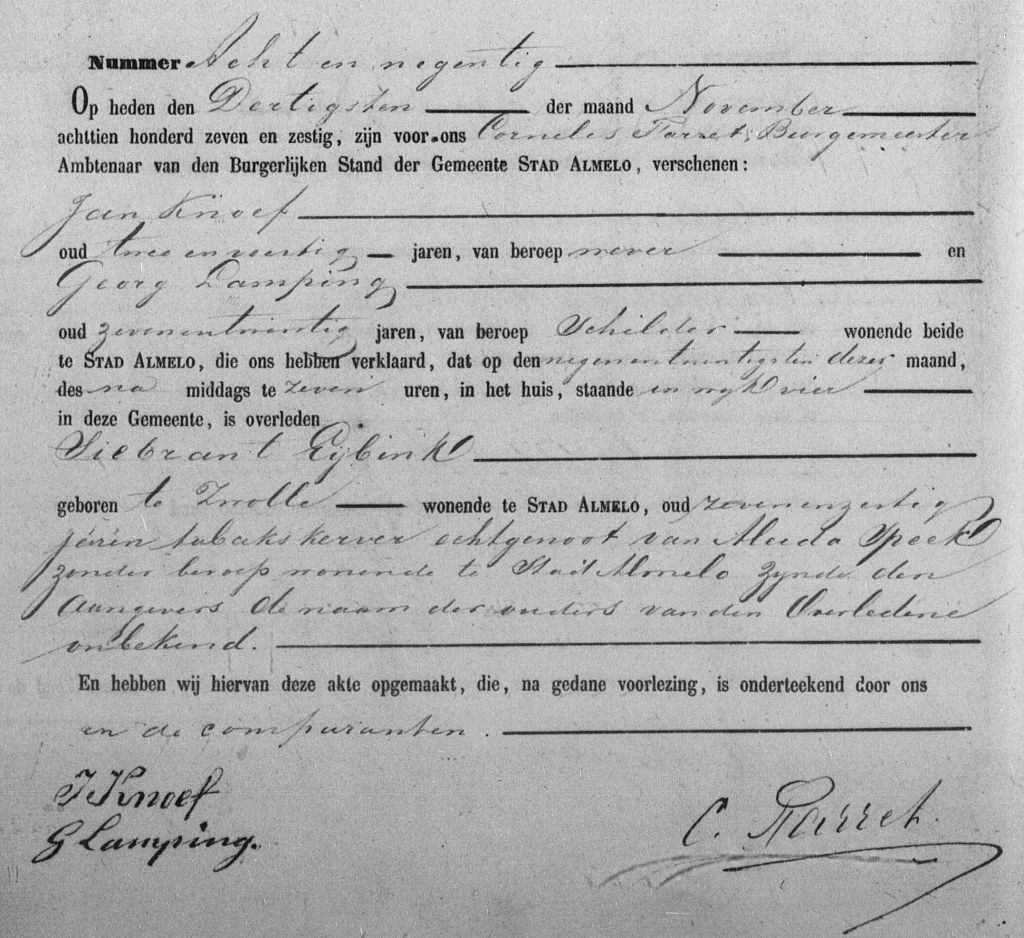 Nummer Acht en negentig
Op heden den Dertigsten der maand November
achttien honderd zeven en zestig, zijn voor ons Cornelis Parret, Burgemeester
Ambtenaar van den Burgerlijken Stand der Gemeente STAD ALMELO, verschenen:
Jan Knoef
oud twee en veertig jaren, van beroep wever en
Georg Lamping
oud zevenentwintig jaren, van beroep Schilder wonende beide
te STAD ALMELO, die ons hebben verklaard, dat op den negenentwintigsten dezer maand,
des na middags te zeven uren, in het huis, staande in wyk vier
in deze Gemeente, is overleden
Siebrant Eybink
geboren te Zwolle wonende te STAD ALMELO, oud zevenenzestig
jaren tabakskerver echtgenoot van Aleida Speek
zonder beroep wonende te Stad Almelo zynde den
Aangevers de naam der ouders van den Overledene
onbekend.
En hebben wij hiervan deze akte opgemaakt, die, na gedane voorlezing, is onderteekend door ons
en de comparanten.
J Knoef
G Lamping.
C. Parret.